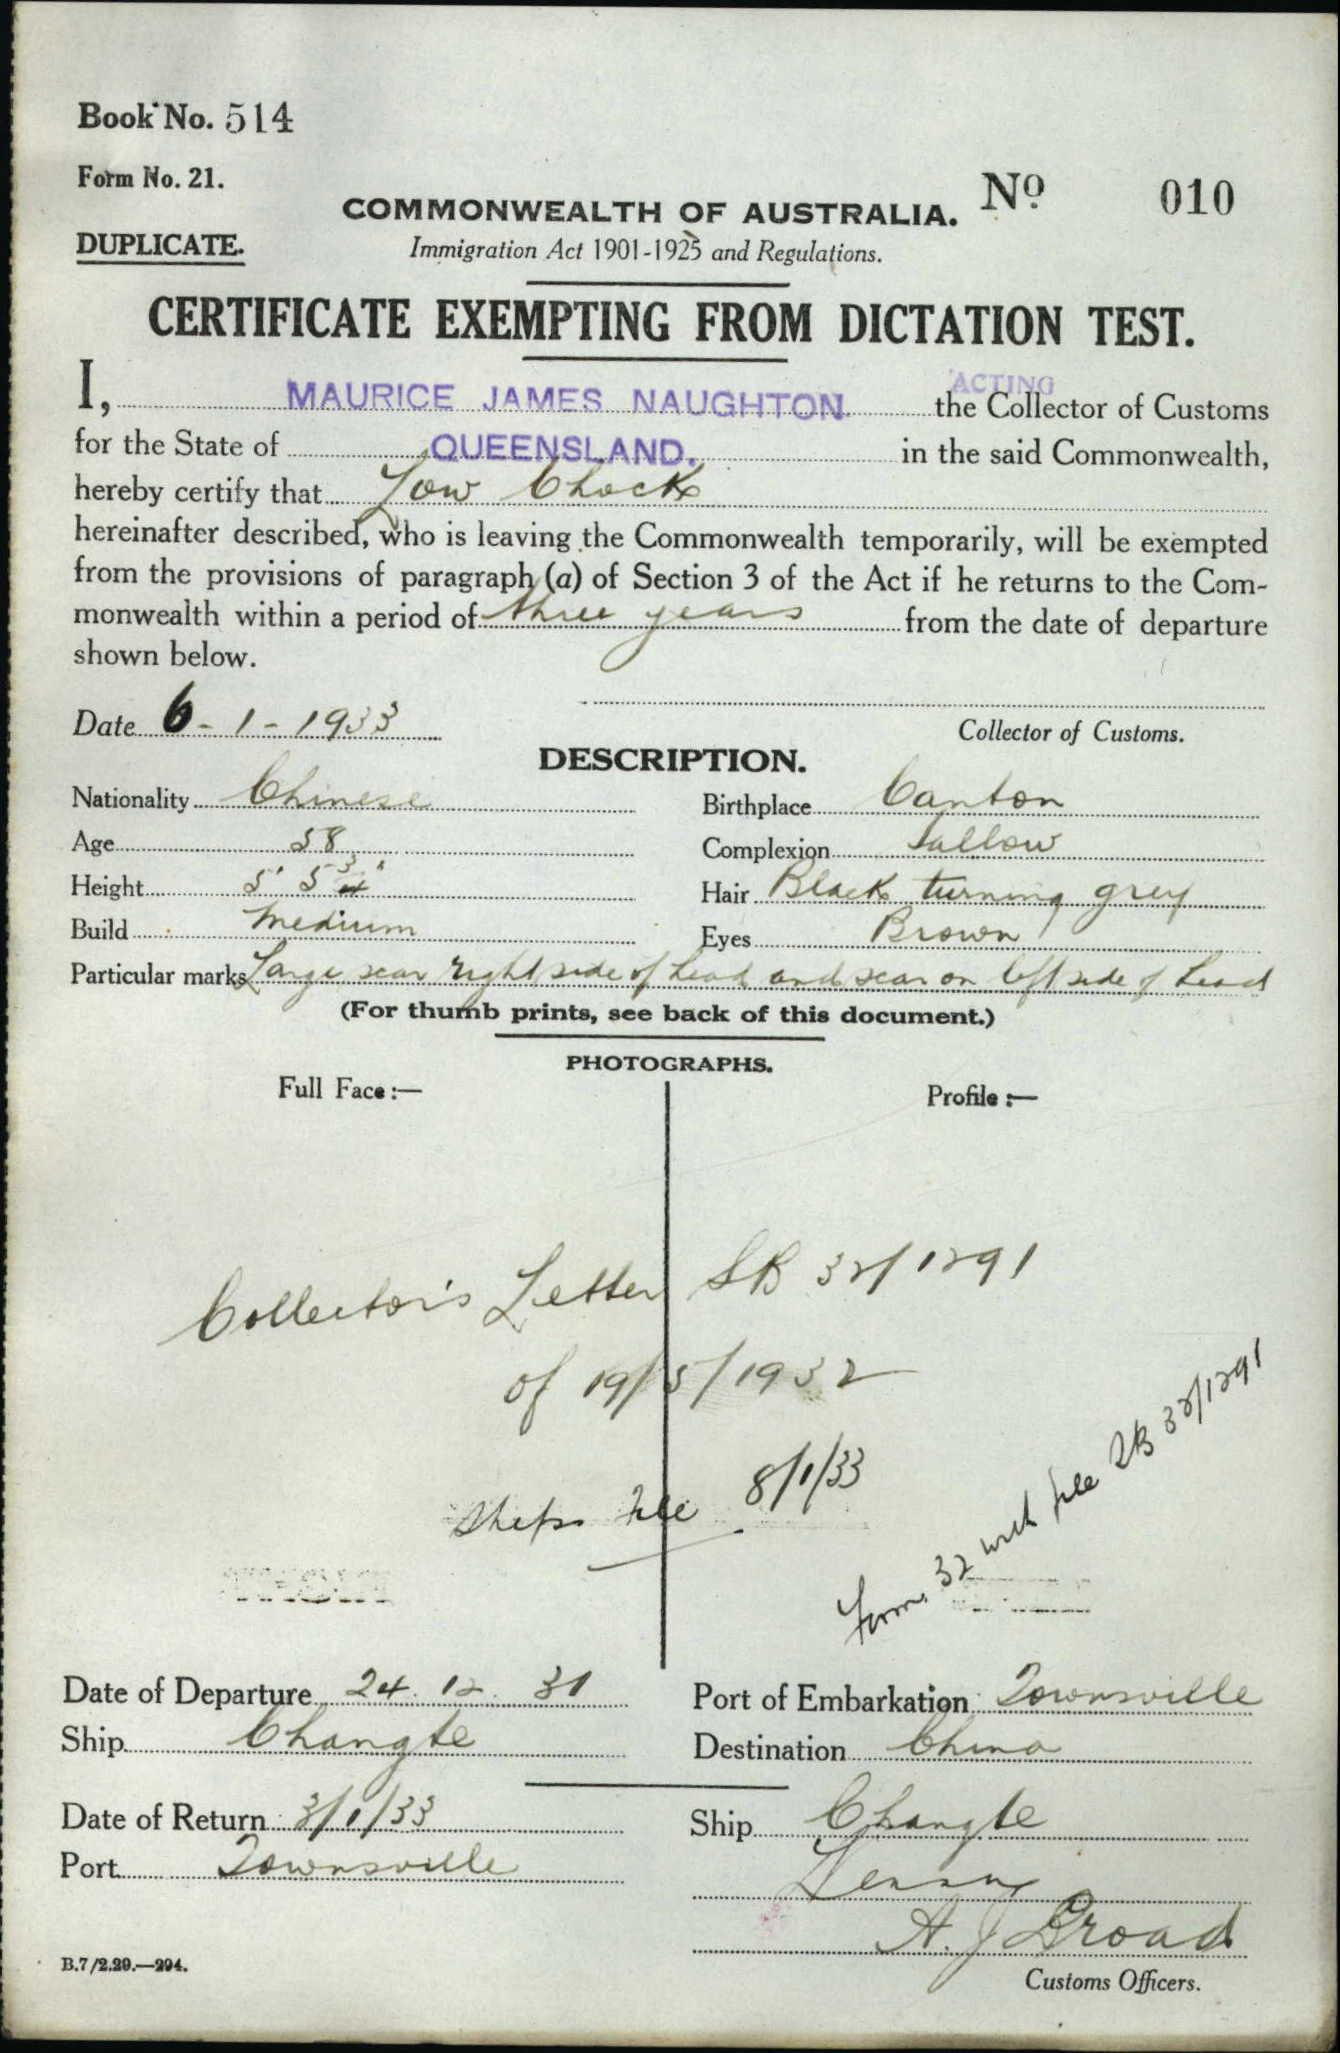 Book No. 514
Form No. 21.
DUPLICATE.
COMMONWEALTH OF AUSTRALIA. No. 010
Immigration Act 1901-1925 and Regulations.
CERTIFICATE EXEMPTING FROM DICTATION TEST.
ACTING
I, MAURICE JAMES NAUGHTON the Collector of Customs
for the State of QUEENSLAND. in the said Commonwealth,
hereby certify that Low Chock
hereinafter described, who is leaving the Commonwealth temporarily, will be exempted
from the provisions of paragraph (a) of Section 3 of the Act if he returns to the Com-
monwealth within a period of three years from the date of departure
shown below.
Date 6-1-1933
Collector of Customs.
DESCRIPTION.
Nationality Chinese Birthplace Canton
Age 58 Complexion Sallow
Height 5' 5 3/4" Hair Black turning grey
Build Medium Eyes Brown
Particular marks Large scar right side of head and scar on left side of head
(For thumb prints, see back of this document.)
PHOTOGRAPHS.
Full Face:— Profile:—
Collector's Letter SB 32/1291
of 19/5/1932
Ships file 8/1/33
Form 32 with file SB 32/1291
Date of Departure 24.12.31 Port of Embarkation Townsville
Ship Changte Destination China
Date of Return 3/1/33 Ship Changte
Port Townsville
A. J Broad
Customs Officers.
B.7/2.29.—294.